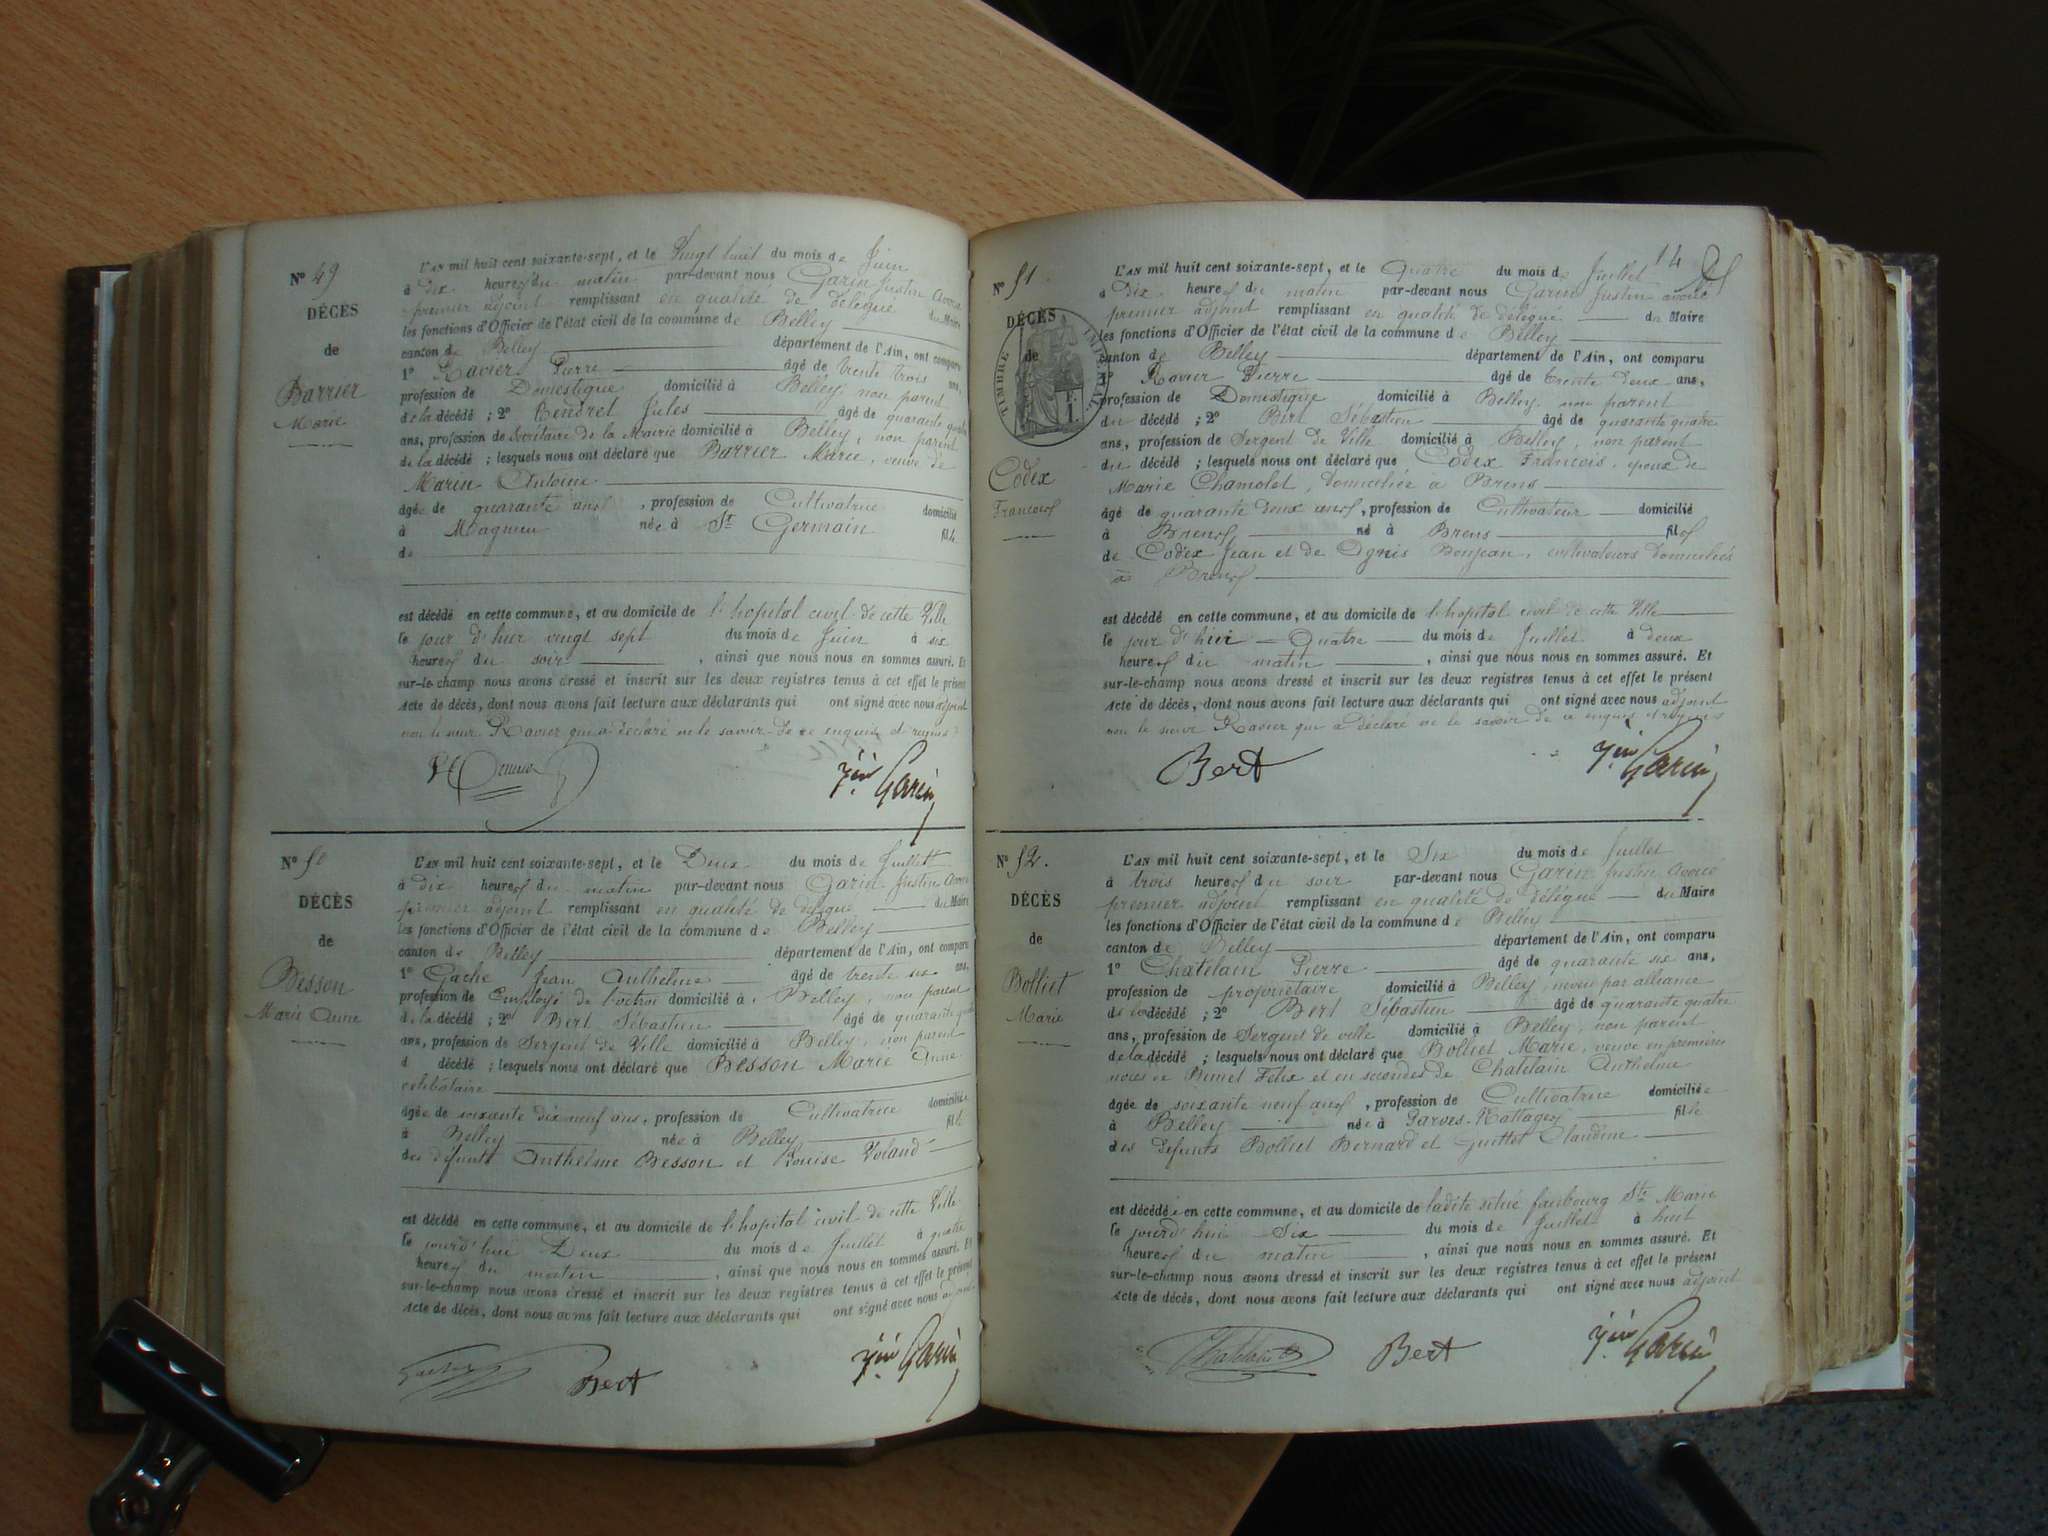 N° 49
DÉCÈS
de
Barrier
Marie
L'AN mil huit cent soixante-sept, et le Vingt huit du mois de Juin
à dix heures du matin par-devant nous Garin Justin Avoué
premier adjoint remplissant en qualité de délégué du Maire
les fonctions d'Officier de l'état civil de la commune de Belley
canton de Belley département de l'Ain, ont comparu
1° Ravier Pierre âgé de trente trois ans,
profession de Domestique domicilié à Belley, non parent
de la décédé ; 2° Tendret Jules âgé de quarante quatre
ans, profession de Secrétaire de la Mairie domicilié à Belley, non parent
de la décédé ; lesquels nous ont déclaré que Barrier Marie, veuve de
Marin Antoine
âgée de quarante ans, profession de Cultivatrice domicilié
à Magnieu née à St Germain fille
de
est décédé en cette commune, et au domicile de l'hopital civil de cette Ville
le jour d'hier vingt sept du mois de Juin à six
heures du soir, ainsi que nous nous en sommes assuré. Et
sur-le-champ nous avons dressé et inscrit sur les deux registres tenus à cet effet le présent
acte de décès, dont nous avons fait lecture aux déclarants qui ont signé avec nous adjoint
non le sieur Ravier qui a déclaré ne le savoir de ce enquis et requis
Jin Garin
N° 50
DÉCÈS
de
Besson
Marie Anne
L'AN mil huit cent soixante-sept, et le Deux du mois de Juillet
à dix heures du matin par-devant nous Garin Justin Avoué
premier adjoint remplissant en qualité de délégué du Maire
les fonctions d'Officier de l'état civil de la commune de Belley
canton de Belley département de l'Ain, ont comparu
1° Gache Jean Anthelme âgé de trente six ans,
profession de Employé de l'octroi domicilié à Belley, non parent
de la décédé ; 2° Bert Sébastien âgé de quarante quatre
ans, profession de Sergent de Ville domicilié à Belley, non parent
d décédé ; lesquels nous ont déclaré que Besson Marie Anne
celibataire
âgée de soixante dix neuf ans, profession de Cultivatrice domiciliée
à Belley née à Belley fille
des défunts Anthelme Besson et Louise Voland
est décédé en cette commune, et au domicile de l'hopital civil de cette Ville
le jourd'hui Deux du mois de Juillet à quatre
heures du matin, ainsi que nous nous en sommes assuré. Et
sur-le-champ nous avons dressé et inscrit sur les deux registres tenus à cet effet le présent
acte de décès, dont nous avons fait lecture aux déclarants qui ont signé avec nous adjoint
Gache Bert Jin Garin
14
N° 51
DÉCÈS
de
TIMBRE IMPÉRIAL
F. 1.
Codex
Francois
L'AN mil huit cent soixante-sept, et le Quatre du mois de Juillet
à Dix heures du matin par-devant nous Garin Justin avoué
premier adjoint remplissant en qualité de délégué du Maire
les fonctions d'Officier de l'état civil de la commune de Belley
canton de Belley département de l'Ain, ont comparu
1° Ravier Pierre âgé de trente deux ans,
profession de Domestique domicilié à Belley, non parent
du décédé ; 2° Bert Sébastien âgé de quarante quatre
ans, profession de Sergent de Ville domicilié à Belley, non parent
du décédé ; lesquels nous ont déclaré que Codex François, epoux de
Marie Chamolet, domiciliée à Brens
âgé de quarante deux ans, profession de Cultivateur domicilié
à Brens né à Brens fils
de Codex Jean et de Agnès Bonjean, cultivateurs domiciliés
à Brens
est décédé en cette commune, et au domicile de l'hopital civil de cette Ville
le jour d'hui Quatre du mois de Juillet à deux
heures du matin, ainsi que nous nous en sommes assuré. Et
sur-le-champ nous avons dressé et inscrit sur les deux registres tenus à cet effet le présent
acte de décès, dont nous avons fait lecture aux déclarants qui ont signé avec nous adjoint
non le sieur Ravier qui a déclaré ne le savoir de ce enquis et requis
Bert Jin Garin
N° 52.
DÉCÈS
de
Bolliet
Marie
L'AN mil huit cent soixante-sept, et le Six du mois de Juillet
à trois heures du soir par-devant nous Garin Justin Avoué
premier adjoint remplissant en qualité de délégué du Maire
les fonctions d'Officier de l'état civil de la commune de Belley
canton de Belley département de l'Ain, ont comparu
1° Chatelain Pierre âgé de quarante six ans,
profession de propriétaire domicilié à Belley, neveu par alliance
de la décédé ; 2° Bert Sébastien âgé de quarante quatre
ans, profession de Sergent de ville domicilié à Belley, non parent
de la décédé ; lesquels nous ont déclaré que Bolliet Marie, veuve en premières
noces de Bimet Felix et en secondes de Chatelain Anthelme
âgée de soixante neuf ans, profession de Cultivatrice domiciliée
à Belley née à Parves-Nattages fille
des défunts Bolliet Bernard et Guittet Claudine
est décédée en cette commune, et au domicile de ladite situé faubourg Ste Marie
le jourd'hui Six du mois de Juillet à huit
heures du matin, ainsi que nous nous en sommes assuré. Et
sur-le-champ nous avons dressé et inscrit sur les deux registres tenus à cet effet le présent
acte de décès, dont nous avons fait lecture aux déclarants qui ont signé avec nous adjoint
Chatelain Bert Jin Garin